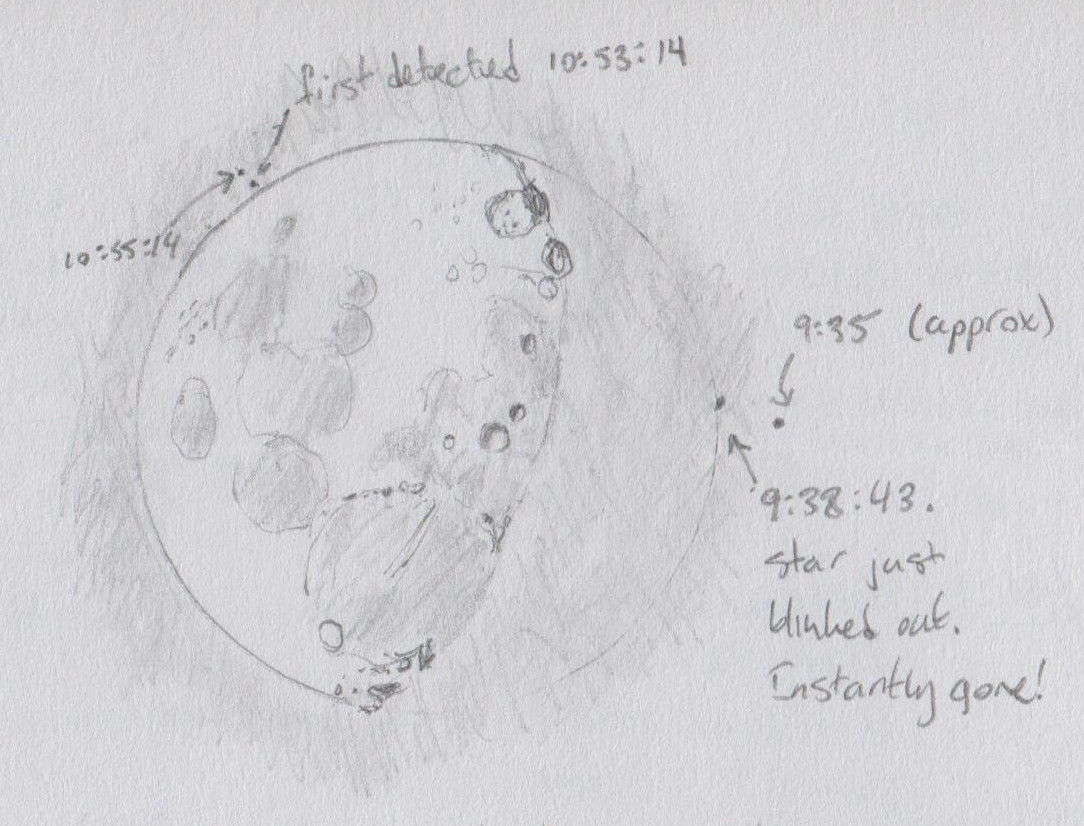 first detected 10:53:14
10:55:14
9:35 (approx)
9:38:43.
star just
blinked out.
Instantly gone!